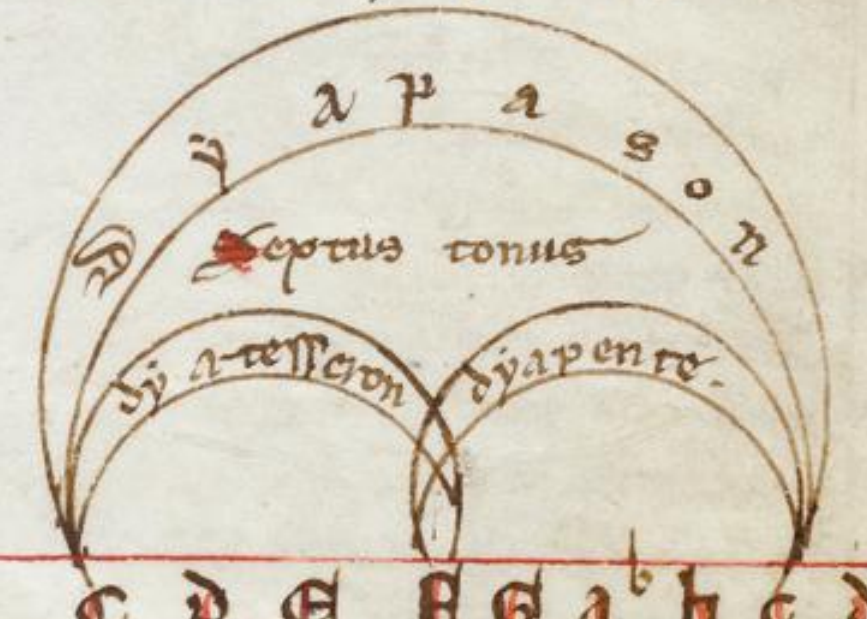 dyapason
Septus tonus
dyatesseron dyapente.
C D E F G a b h c d